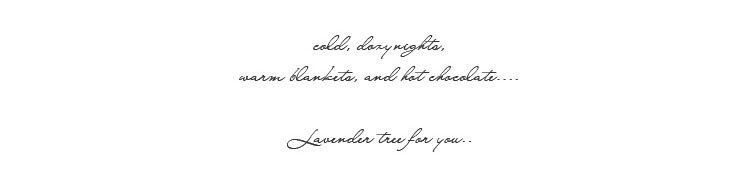 cold, dozy nights,
warm blankets, and hot chocolate....
Lavender tree for you..